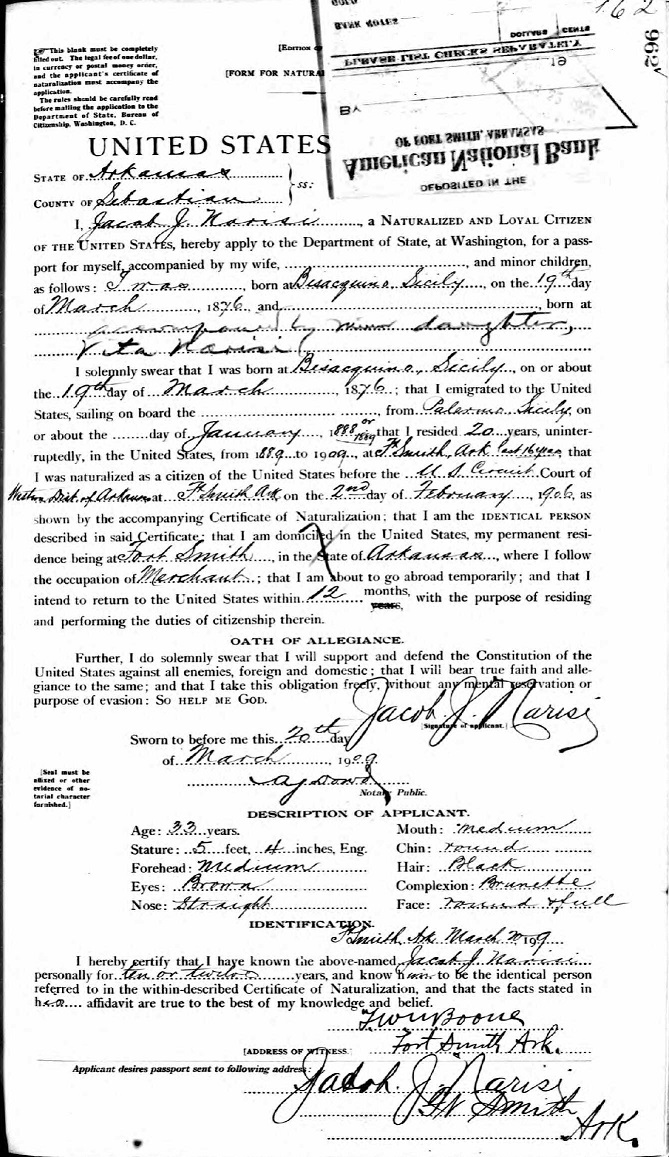 162
962
GOLD
BANK NOTES
DOLLARS CENTS
PLEASE LIST CHECKS SEPARATELY
19
BY
OF FORT SMITH, ARKANSAS
American National Bank
DEPOSITED IN THE
This blank must be completely
filled out. The legal fee of one dollar,
in currency or postal money order,
and the applicant's certificate of
naturalization must accompany the
application.
The rules should be carefully read
before mailing the application to the
Department of State, Bureau of
Citizenship, Washington, D. C.
[EDITION
[FORM FOR NATURA
UNITED STATES
STATE OF Arkansas
COUNTY OF Sebastian } ss:
I, Jacob J. Narisi, a NATURALIZED AND LOYAL CITIZEN
OF THE UNITED STATES, hereby apply to the Department of State, at Washington, for a pass-
port for myself, accompanied by my wife, , and minor children,
as follows: I was, born at Bisacquino, Sicily, on the 19th day
of March, 1876, and , born at
accompanied by minor daughter,
Vita Narisi
I solemnly swear that I was born at Bisacquino, Sicily, on or about
the 19th day of March, 1876; that I emigrated to the United
States, sailing on board the , from Palermo Sicily, on
or about the day of January, 1888 or 1889 that I resided 20 years, uninter-
ruptedly, in the United States, from 1889 to 1909, at Ft Smith, Ark last 16 years that
I was naturalized as a citizen of the United States before the U S Circuit Court of
Western Dist of Arkansas at Ft Smith Ark on the 2nd day of February, 1906, as
shown by the accompanying Certificate of Naturalization; that I am the IDENTICAL PERSON
described in said Certificate; that I am domiciled in the United States, my permanent resi-
dence being at Fort Smith, in the State of Arkansas, where I follow
the occupation of Merchant; that I am about to go abroad temporarily; and that I
intend to return to the United States within 12 months, years, with the purpose of residing
and performing the duties of citizenship therein.
OATH OF ALLEGIANCE.
Further, I do solemnly swear that I will support and defend the Constitution of the
United States against all enemies, foreign and domestic; that I will bear true faith and alle-
giance to the same; and that I take this obligation freely, without any mental reservation or
purpose of evasion: SO HELP ME GOD.
Jacob. J. Narisi
[Signature of applicant.]
Sworn to before me this 20th day
of March, 1909
A J Dowd
Notary Public.
[Seal must be
affixed or other
evidence of no-
tarial character
furnished.]
DESCRIPTION OF APPLICANT.
Age: 33 years. Mouth: medium
Stature: 5 feet, 4 inches, Eng. Chin: round
Forehead: Medium Hair: Black
Eyes: Brown Complexion: Brunette
Nose: Straight Face: round & full
IDENTIFICATION.
Ft Smith, Ark. March 20 1909
I hereby certify that I have known the above-named Jacob J. Narisi
personally for ten or twelve years, and know him to be the identical person
referred to in the within-described Certificate of Naturalization, and that the facts stated in
his affidavit are true to the best of my knowledge and belief.
Boone
[ADDRESS OF WITNESS: Fort Smith Ark.
Applicant desires passport sent to following address:
Jacob. J. Narisi
Ft Smith
Ark.